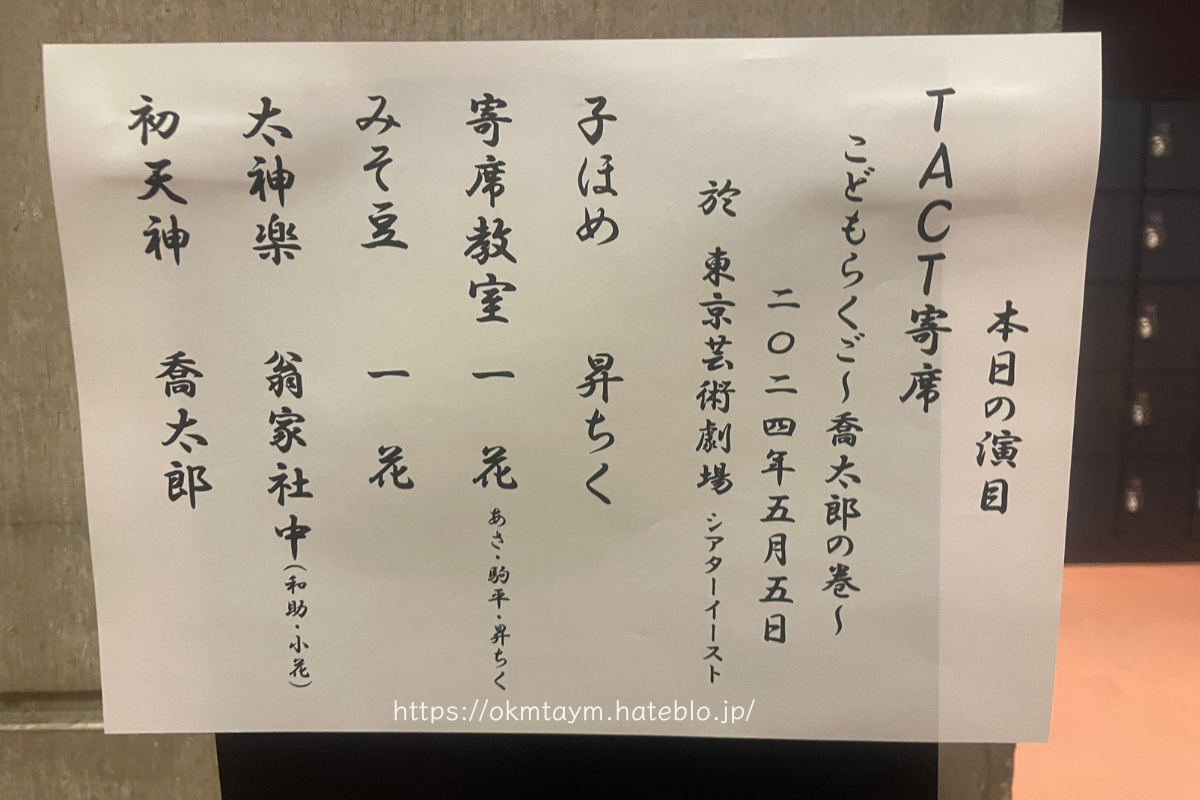 本日の演目
TACT寄席
こどもらくご〜喬太郎の巻〜
二〇二四年五月五日
於 東京芸術劇場 シアターイースト
子ほめ 昇ちく
寄席教室 一花 あさ・駒平・昇ちく
みそ豆 一花
太神楽 翁家社中(和助・小花)
初天神 喬太郎
https://okmtaym.hateblo.jp/